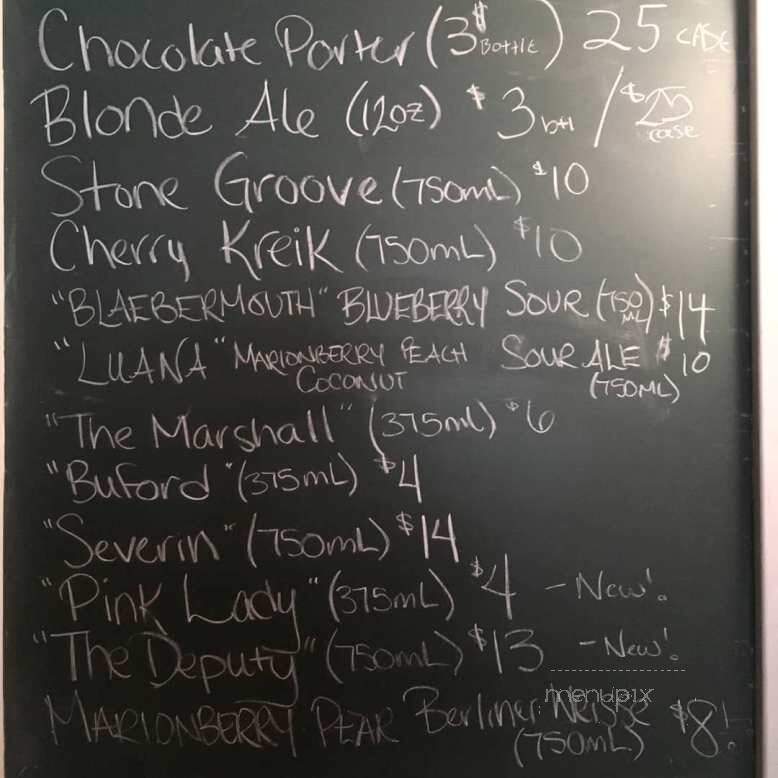 Chocolate Porter ($3 Bottle) 25 case
Blonde Ale (12oz) $3 btl / $25 case
Stone Groove (750mL) $10
Cherry Kreik (750mL) $10
"BLAEBERMOUTH" BLUEBERRY SOUR (750 ML) $14
"LUANA" MARIONBERRY PEACH SOUR ALE $10
COCONUT (750ML)
"The Marshall" (375mL) $6
"Buford" (375mL) $4
"Severin" (750mL) $14
"Pink Lady" (375mL) $4 - New!
"The Deputy" (750mL) $13 - New!
menupix
MARIONBERRY PEAR Berliner Weisse $8!
(750mL)